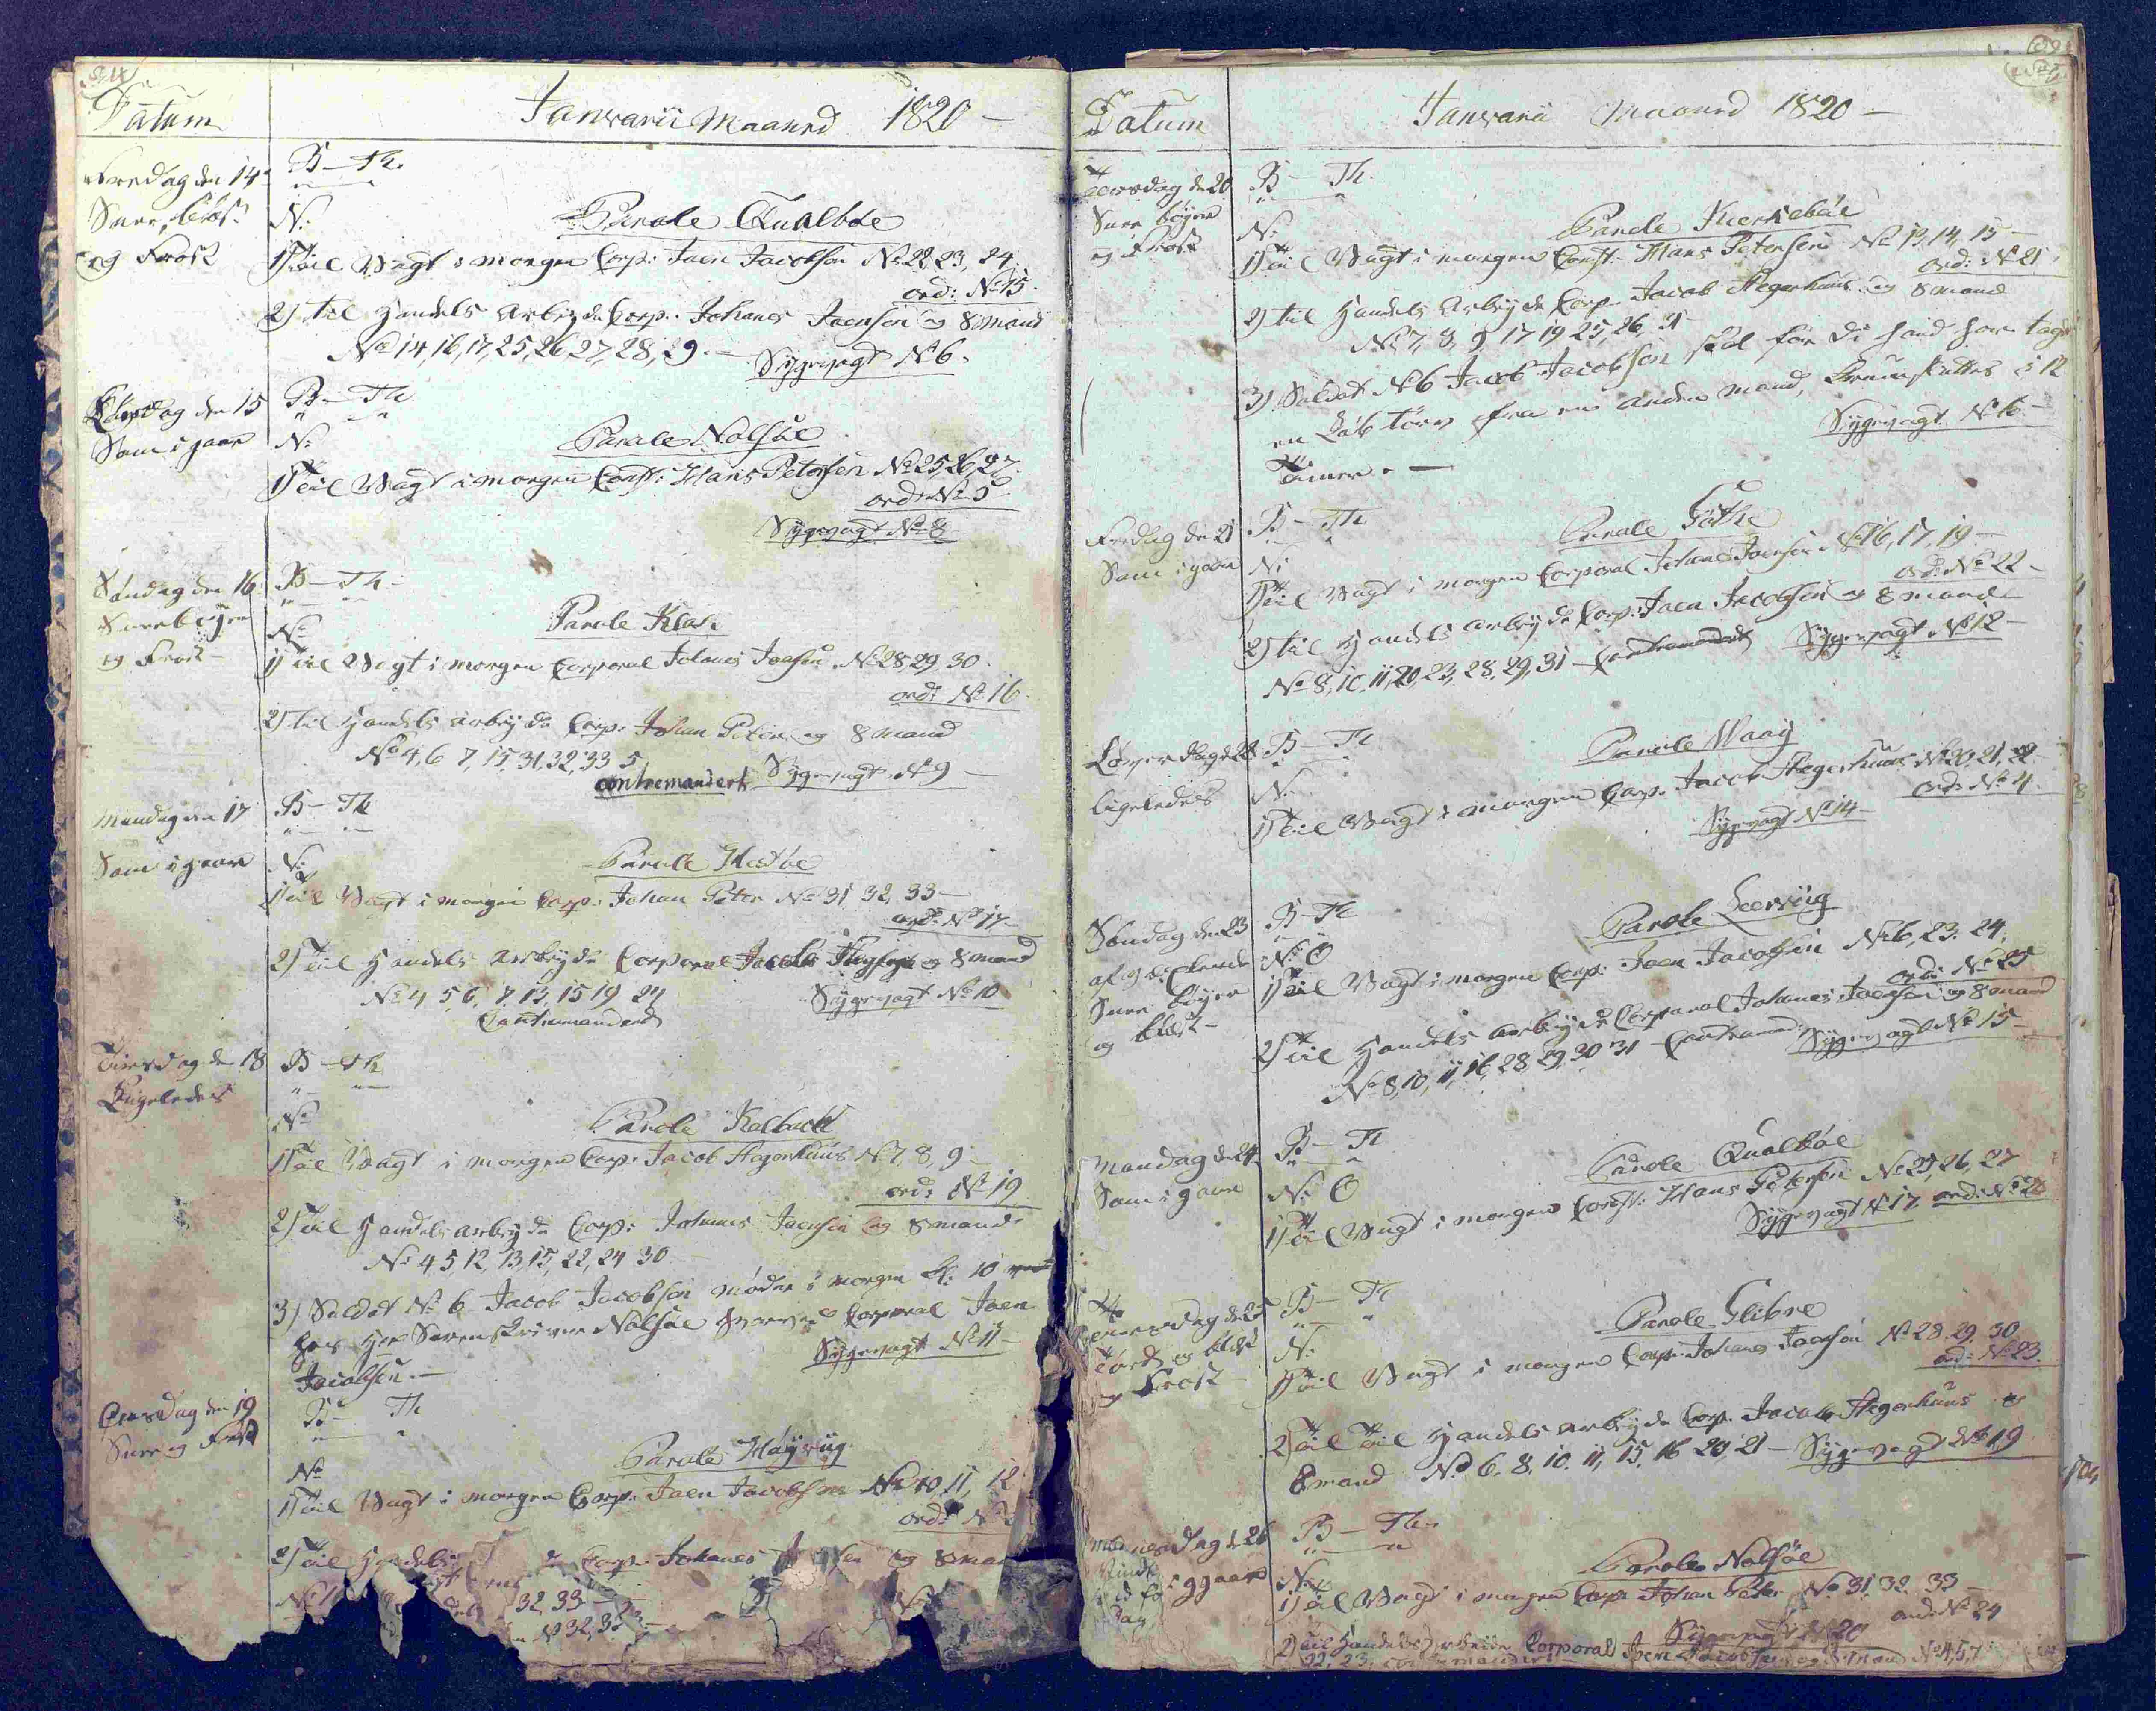 Datum
Januarii Maaned 1820 -
Fredag den 14
B - Th.
Snee, blæst
og Frost
N:
Parole Qualböe
1) Til Vagt i morgen Corp: Joen Jacobsen No 22, 23, 24.
ord: No 15.
2) til Handels Arbeyde Corp: Johanes Joensen og 8 mand
No 14, 16, 17, 25, 26, 27, 28, 29. - Sygevagt No 6.
Löverdag den 15
B - Th
Som i gaar
N:
Parole Nolsöe
1) Til Vagt i morgen Const: Hans Petersen No 25, 26, 27.
ord: No 5
Sygevagt No 8
Söndag den 16
B - Th -
Sneebyger
og Frost -
No
Parole
1) Til Vagt i morgen Corporal Johanes Joensen No 28, 29, 30.
ord: No 16.
2) til Handels arbeyde Corp: Johan Peter og 8 mand
No 4, 6, 7, 15, 31, 32, 33 5
contremandert Sygevagt No 9 -
Mandag den 17
B - Th
Som i gaar
N:
Parole
1) Til Vagt i morgen Corp: Johan Peter No 31, 32, 33 -
ord: No 17 -
2) Til Handels Arbeyde Corporal Jacob og 8 mand
No 4 5 6, 7, 13, 15 19 24
Contremandert
Sygevagt No 10
Tiirsdag den 18
B - Th
Ligeledes
No
Parole Kalbach
1) Til Vagt i morgen Corp: Jacob Hegerhuus No 7, 8, 9 -
ord: No 19
2) Til Handels arbeyde Corp: Johanes Joensen og 8 mand
No 4 5, 12, 13, 15, 22, 24 30
3) Soldat No 6 Jacob Jacobsen möder i morgen Kl: 10
hos Her Sorenskriver Nolsöe Corporal Joen
Jacobsen. -
Sygevagt No 11 -
Onsdag den 19
B - Th
Snee og Frost
No
Parole Höyviig
1) Til Vagt i morgen Corp: Joen Jacobsen No 10, 11, 12
ord: No
2) Til Handels Corp: Johanes og 8 man
32, 33
No 32, 33
Datum
Januarii Maaned 1820 -
Torsdag den 20
B - Th.
Snee böyer
og Frost
N:
Parole Kierkeböe
1) Til Vagt i morgen Const: Hans Petersen No 13, 14, 15 -
ord: No 21
2) til Handels Arbeyde Corp: Jacob Hegerhuus og 8 mand
No 7, 8, 9 17 19, 25, 26, 31
3) Soldat No 6 Jacob Jacobsen skal for di hand har taget
en törv fra en anden mand, Kruumsluttes i 12
Timer. -
Sygevagt No 6 -
Fredag den 21
B - Th
Som i gaar
N:
Parole Göthe
1) Til Vagt i morgen Corporal Johanes Joensen No 16, 17, 19 -
ord: No 22 -
2) til Handels arbeyde Corp: Joen Jacobsen og 8 mand
No 8, 10, 11, 20, 23, 28, 29, 31 - Contremandert Sygevagt No 12 -
Löverdag d 22
B - Th
ligeledes
N:
Parole Waag
1) Til Vagt i morgen Corp: Jacob Hegerhuus No 20, 21, 22
ord: No 4.
Sygevagt No 14 -
Söndag den 23
B - Th
Snee böyer
og blæst -
N: O
Parole Leerviig
1) Til Vagt i morgen Corp: Joen Jacobsen No 6, 23, 24,
ord: No 25
2) Til Handels arbeyde Corporal Johanes Joensen og 8 mand
No 8, 10, 11, 16, 28 29, 30 31 - Contremand: Sygevagt No 15 -
Mandag d 24
B - Th
Som i gaar
N: O
Parole Qualböe
1) Til Vagt i morgen Const: Hans Petersen No 25, 26, 27
Sygevagt No 17, ord: No 28
Tiirsdag d 25
B - Th
og blæst
og Frost
N:
Parole Glibre
1) Til Vagt i morgen Corp: Johanes Joensen No 28. 29. 30
ord: No 23.
2) Til Til Handels arbeyde Corp: Jacob Hegerhuus og
8 mand No 6. 8, 10. 11, 15, 16 20, 21 - Sygevagt No 19
Onsdag d 26
B - Th.
N:
Parole Nolsöe
1) Til Vagt i morgen Corp: Johan Peter No 31, 32, 33 -
ord: No 24
Sygevagt No 20
2) Til Handels Arbeide Corporal Joen Jacobsen og 8 mand No 4, 5, 7
22, 23, contremandert